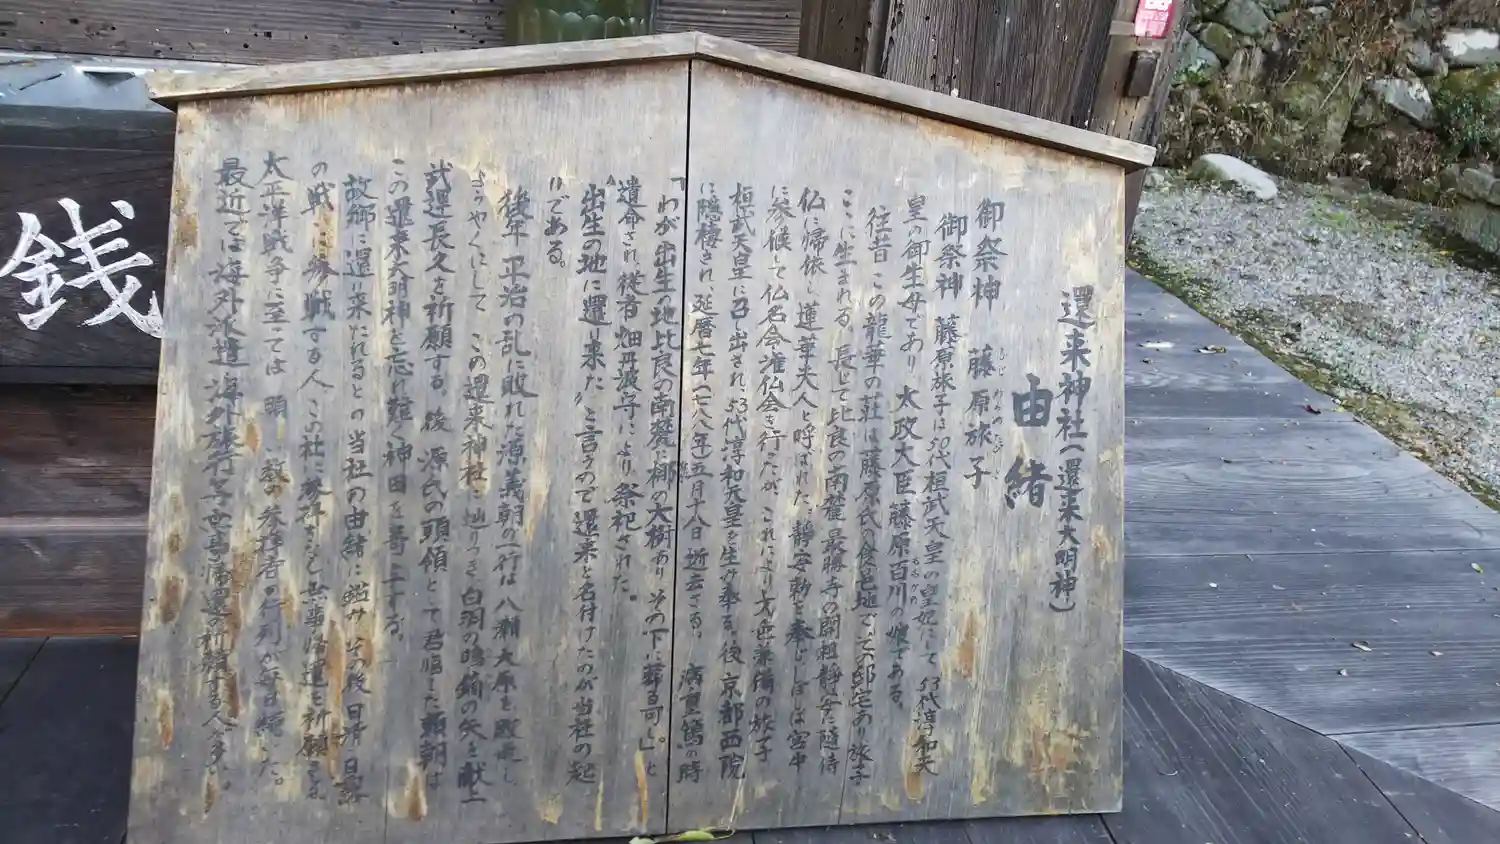 還来神社(還来大明神)
由緒
御祭神 藤原旅子
ふじ わらのたびこ
御祭神 藤原旅子は50代桓武天皇の皇妃にして 53代淳和天
皇の御生母であり 太政大臣藤原百川の娘である。
ももかわ
往昔 この龍華の荘は藤原氏の食邑地で、その邸宅あり旅子
ここに生まれる 長じて比良の南麓 最勝寺の開祖静安に随侍
仏に帰依し 蓮華夫人と呼ばれた。静安勅を奉じしばしば宮中
に参候して仏名会 潅仏会を行ったが、これにより才色兼備の旅子
桓武天皇に召し出され、53代淳和天皇を生み奉る。後 京都西院
に隠棲され、延暦七年(七八八年)五月十八日 逝去さる。 病重篤の時
「わが出生の地比良の南麓に梛の大樹あり その下に葬る可し」と
遺命され、従者 畑丹波守により祭祀された。
出生の地に還り来た と言うので 還来と名付けたのが当社の起
りである。
後年 平治の乱に敗れた源義朝の一行は 八瀬大原を
ようやくにして この還来神社に辿りつき 白羽の鳴鏑の矢を献上
武運長久を祈願する。後 源氏の頭領として君臨した頼朝は
この還来大明神を忘れ難く神田を寄進する。
故郷に還り来たれるとの 当社の由緒に鑑み その後 日清 日露
の戦いに参戦する人 この社に参拝をなし 無事帰還を祈願する。
太平洋戦争に至っては 参拝者の行列が毎日続いた。
最近では 海外派遣 海外旅行等 無事帰還の祈願する人が多い。
銭